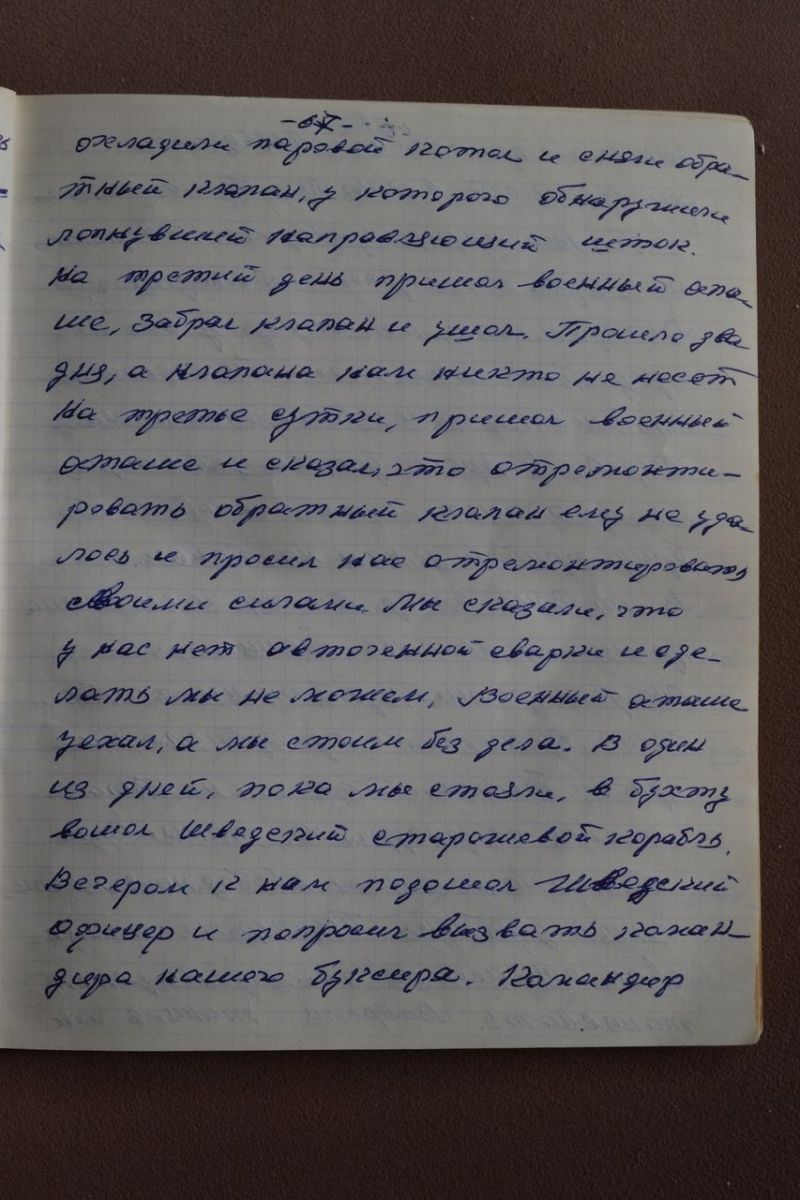 -67-
охладили паровой котел и сняли обра-
тный клапан, у которого обнаружили
лопнувший направляющий шток.
На третий день пришол военный ата-
ше, забрал клапан и ушол. Прошло два
дня, а клапана нам никто не несет
На третье сутки, пришол военный
аташе и сказал, что отремонти-
ровать обратный клапан ему не уда-
лось и просил нас отремонтировать
своими силами. Мы сказали, что
у нас нет автогенной сварки и сде-
лать мы не можем, Военный аташе
уехал, а мы стоим без дела. В один
из дней, пока мы стояли, в бухту
вошол Шведский сторожевой корабль.
Вечером к нам подошол Шведский
офицер и попросил вызвать коман-
дира нашего буксира. Командир